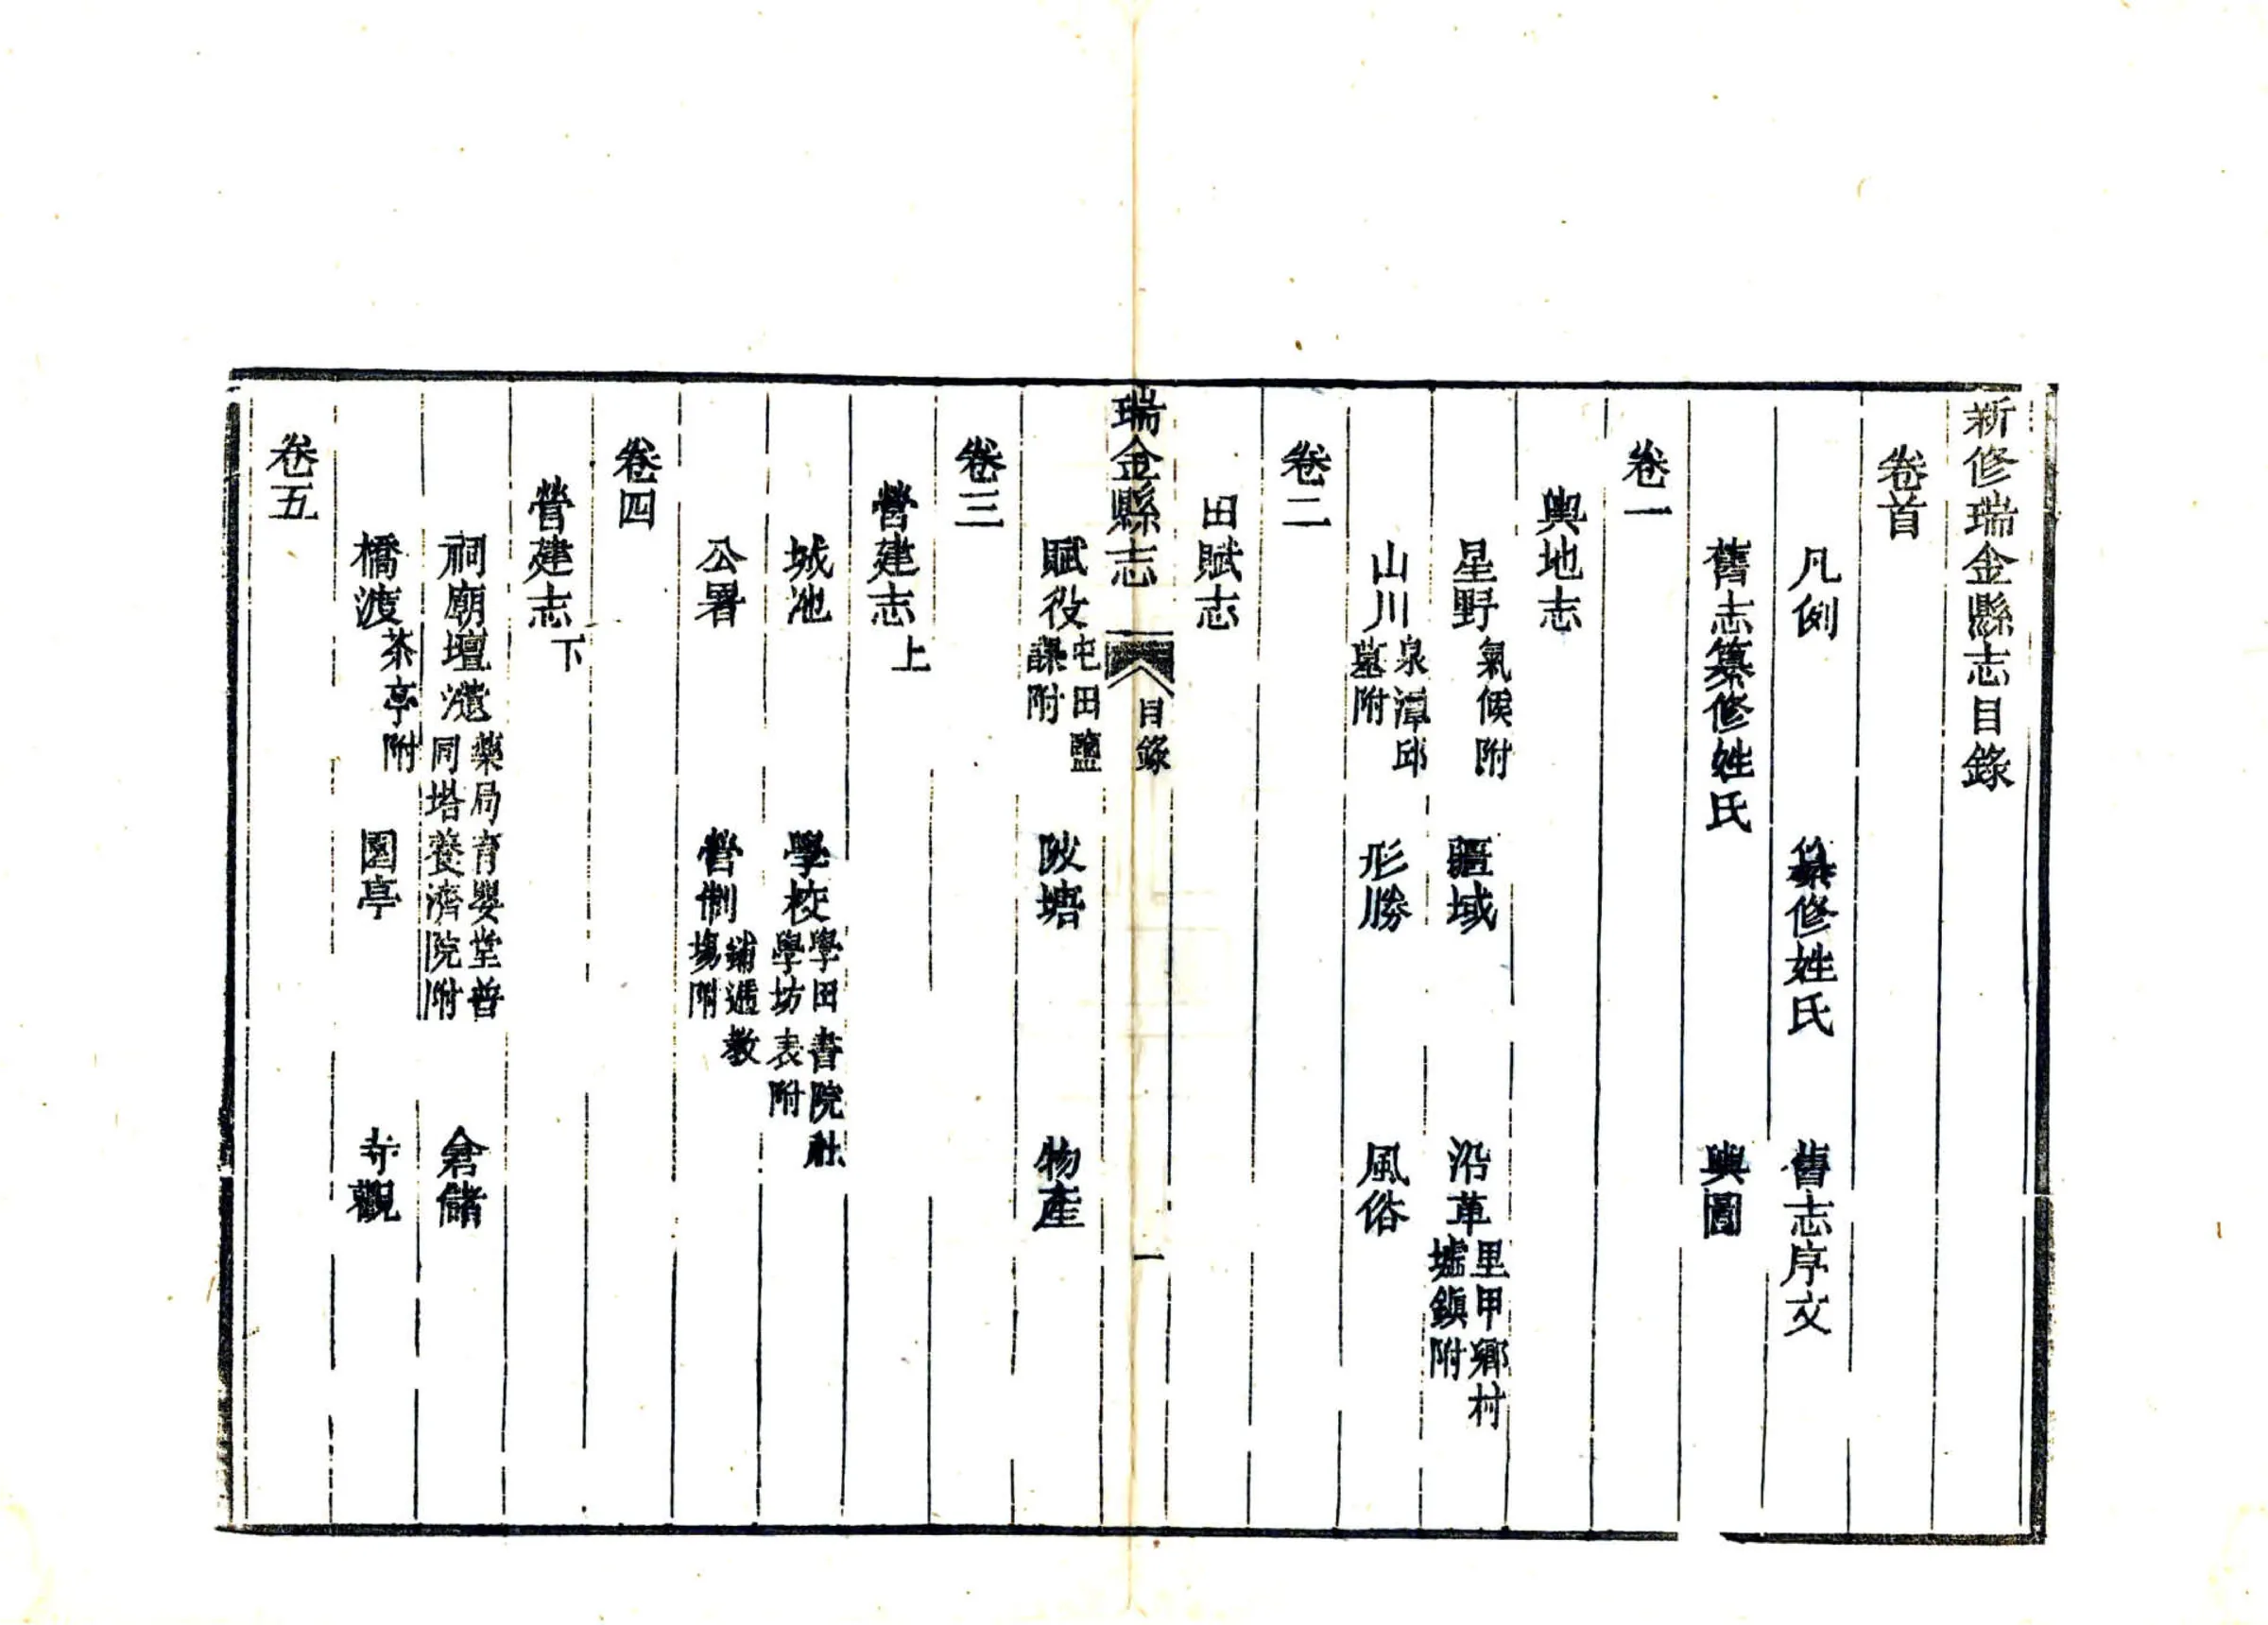 新修瑞金縣志目錄
卷首
凡例 纂修姓氏 舊志序文
舊志纂修姓氏 輿圖
卷一
輿地志
星野氣候附 疆域 沿革里甲鄉村墟鎮附
山川泉潭邱墓附 形勝 風俗
卷二
田賦志
瑞金縣志 目錄 一
賦役屯田鹽課附 陂塘 物產
卷三
營建志上
城池 學校學田書院社學坊表附
公署 營制鋪遞教場附
卷四
營建志下
祠廟壇藥局育嬰堂普同塔養濟院附 倉儲
橋渡茶亭附 園亭 寺觀
卷五